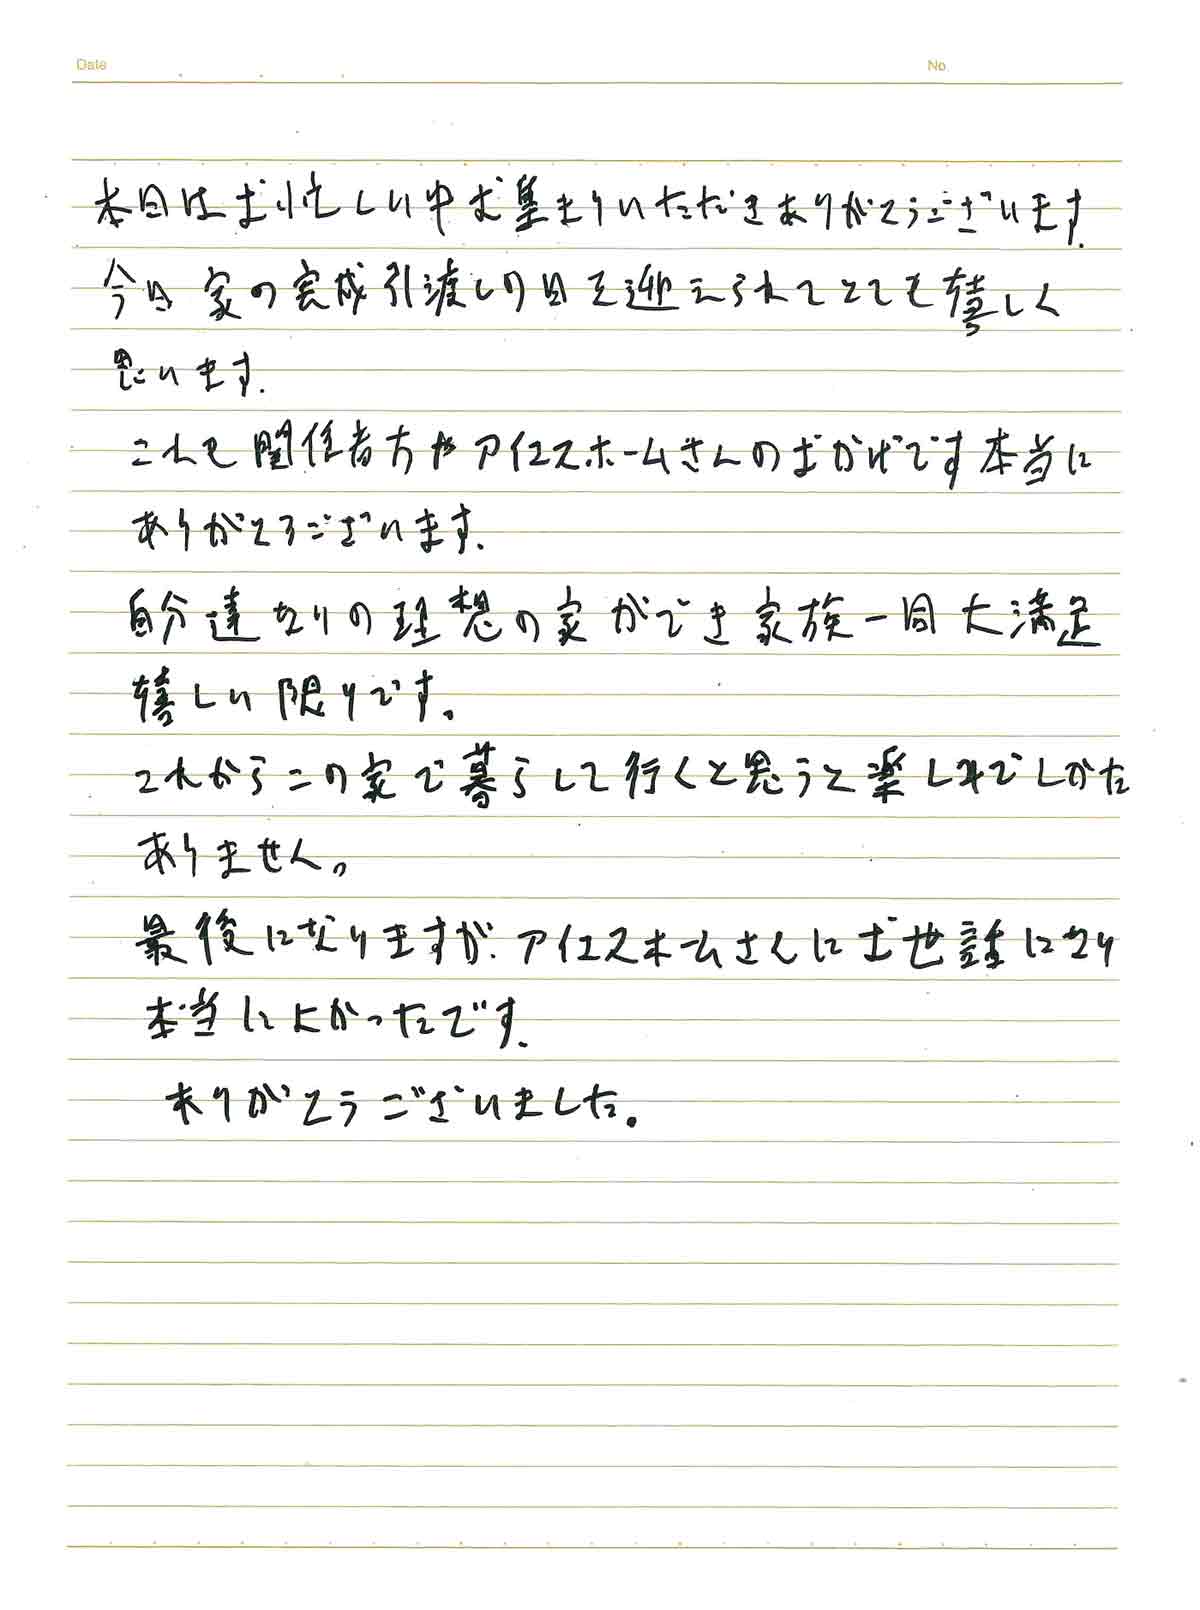 Date No.
本日はお忙しい中お集まりいただきありがとうございます.
今日家の完成引渡しの日を迎えられてとても嬉しく
思います.
これも関係者方やアイエスホームさんのおかげです本当に
ありがとうございます.
自分達なりの理想の家ができ家族一同大満足
嬉しい限りです。
これからこの家で暮らして行くと思うと楽しみでしかた
ありません。
最後になりますが.アイエスホームさんにお世話になり
本当によかったです.
ありがとうございました。